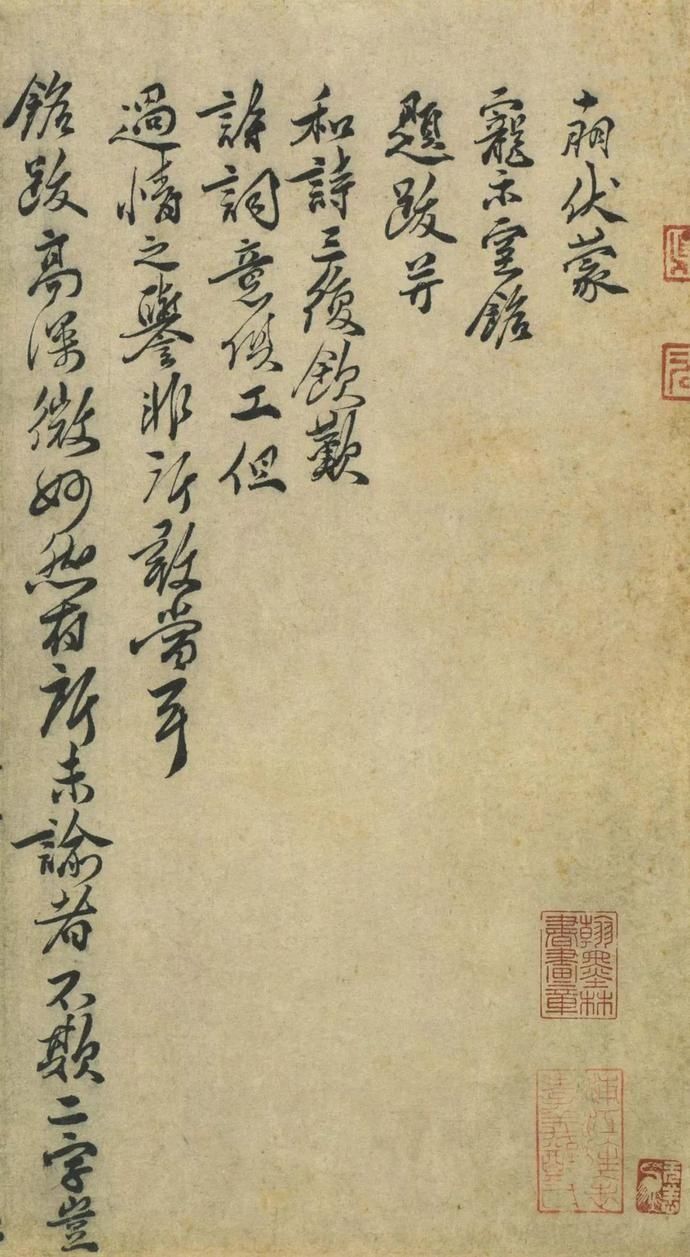 十朋伏蒙
寵示室銘
題跋并
和詩三復欽歎
詩詞意俱工但
過情之譽非所敢當耳
銘跋高深微妙然有所未諭者不欺二字豈
翰墨林
書畫章